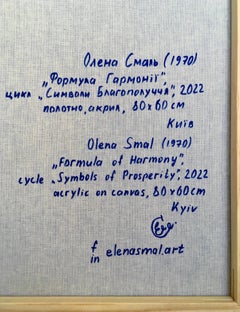 Олена Смаль (1970)
„Формула Гармонії",
цикл „Символи Благополуччя", 2022
полотно, акрил, 80х60 см
Київ
Olena Smal (1970)
„Formula of Harmony",
cycle „Symbols of Prosperity", 2022
acrylic on canvas, 80x60cm
Kyiv
f
in elenasmal.art